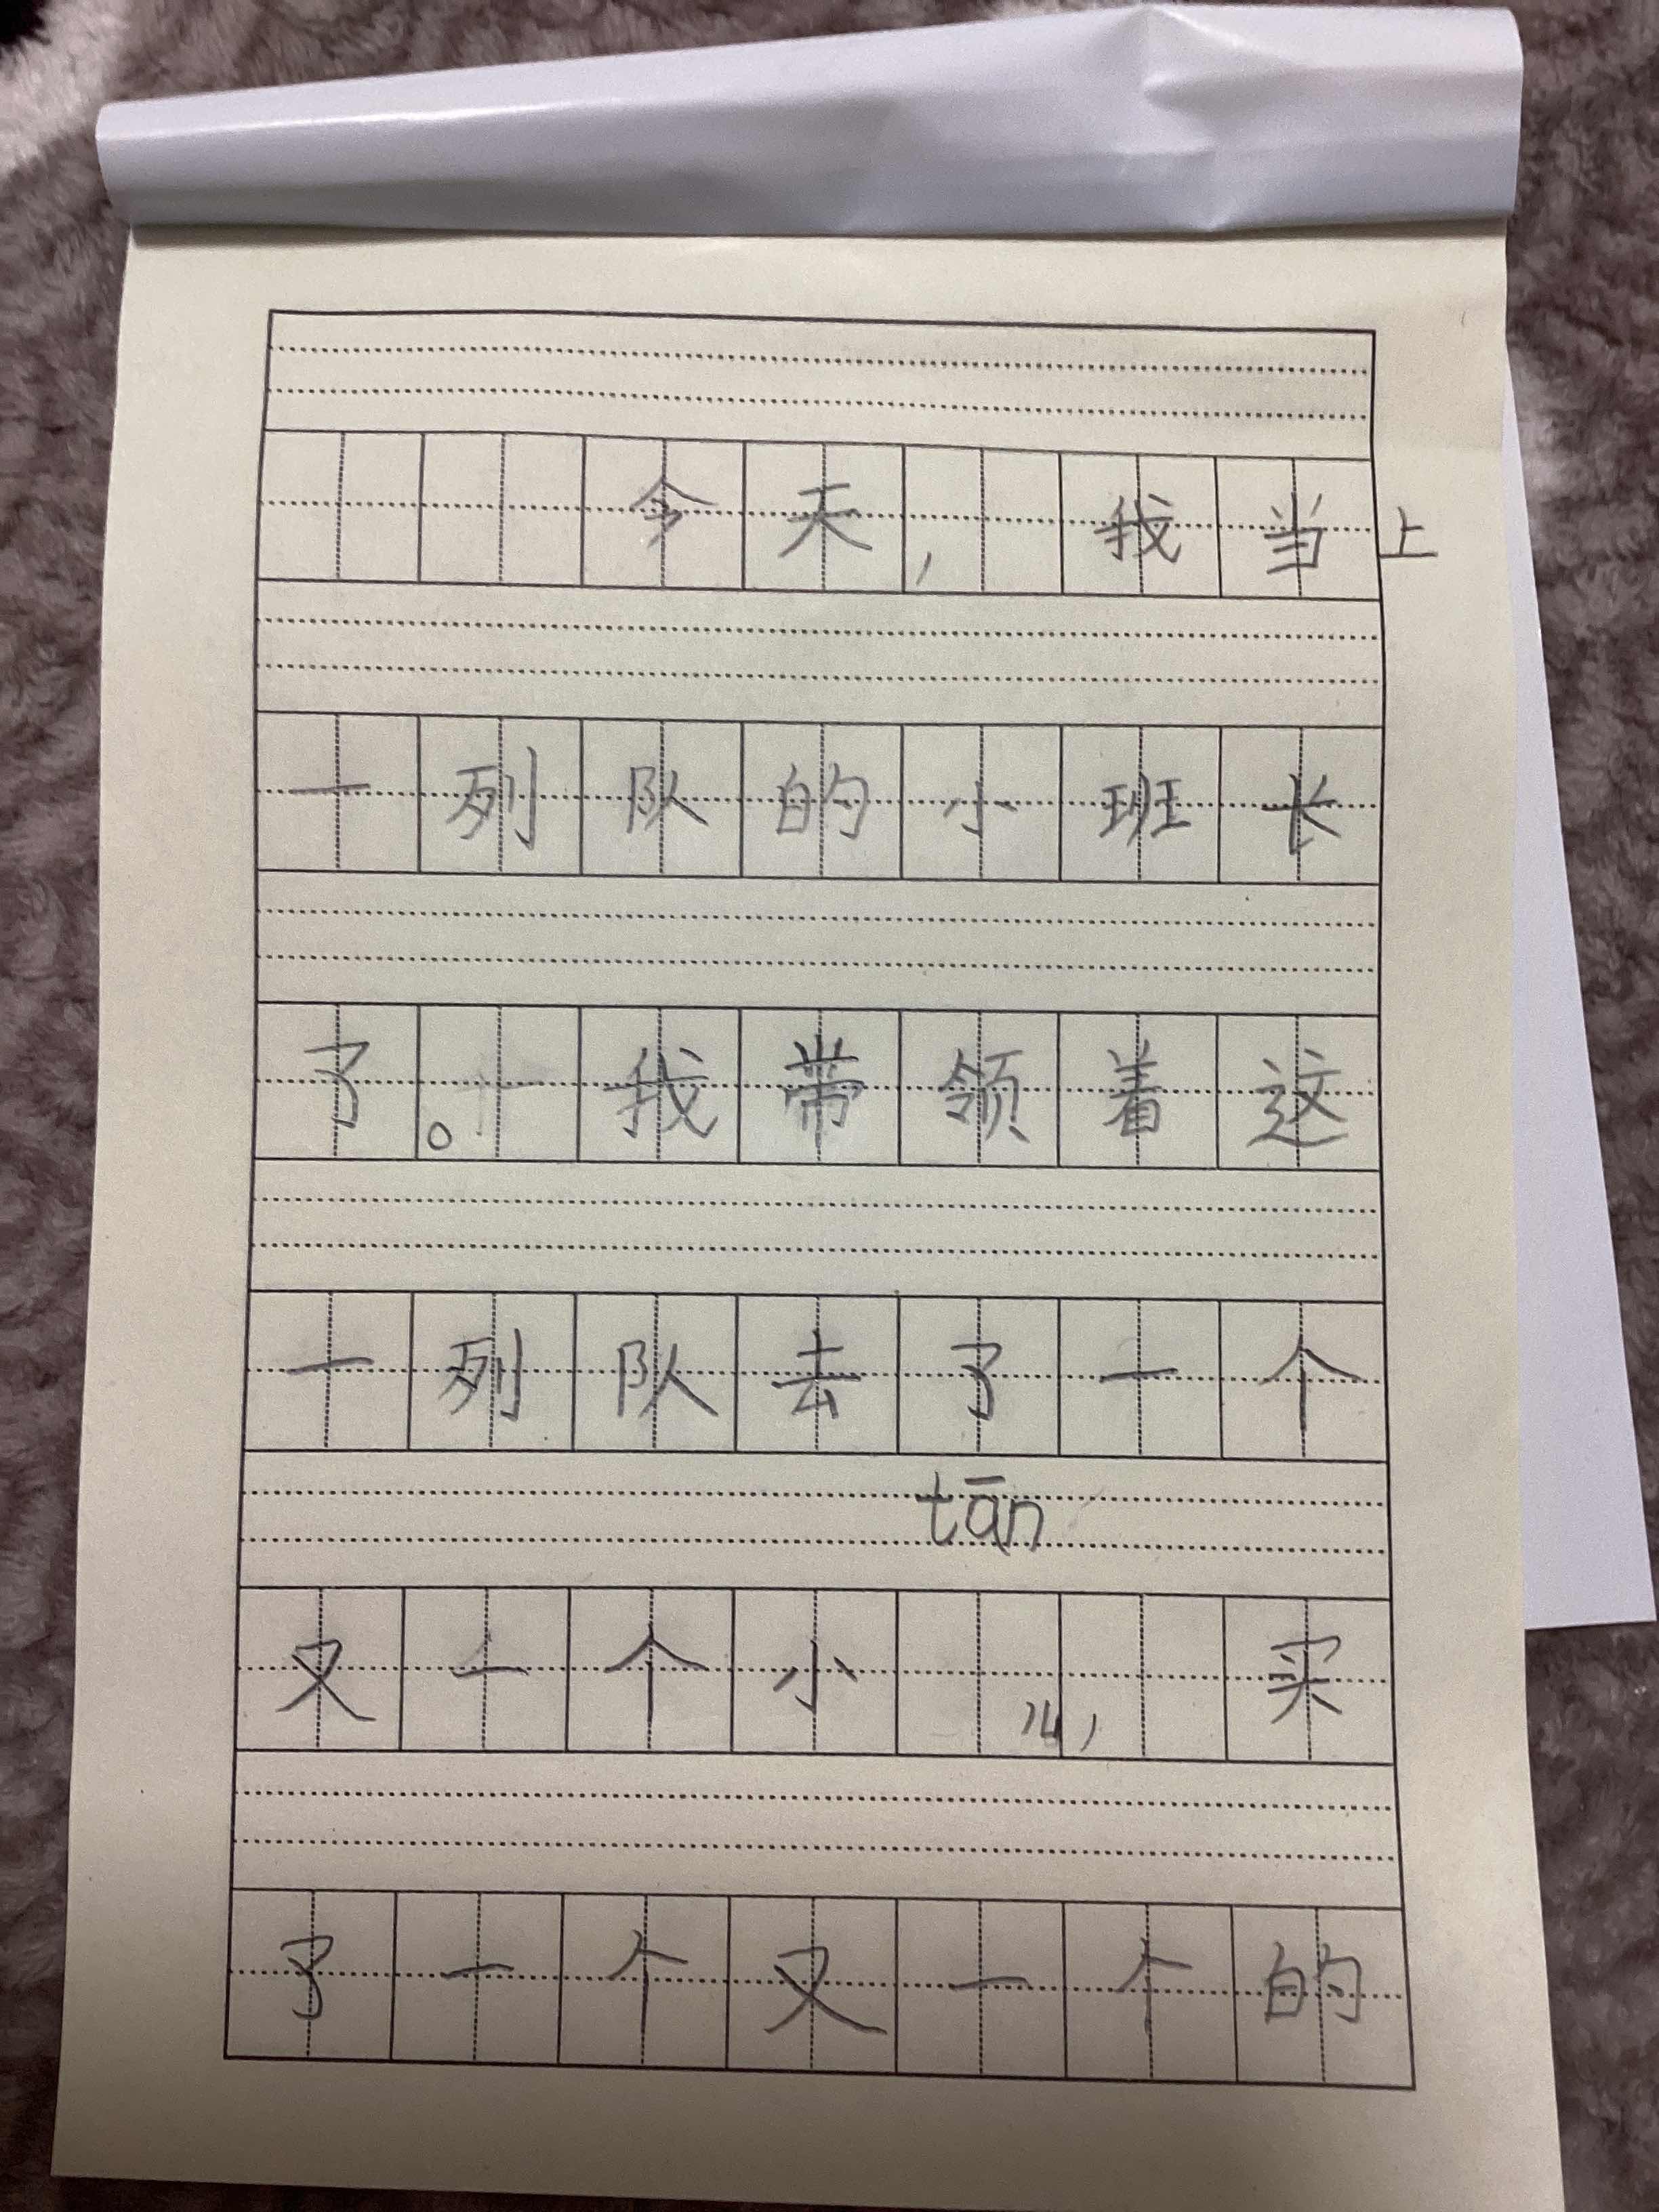 今天，我当上
一列队的小班长
了。我带领着这
一列队去了一个
tān
又一个小儿，买
了一个又一个的